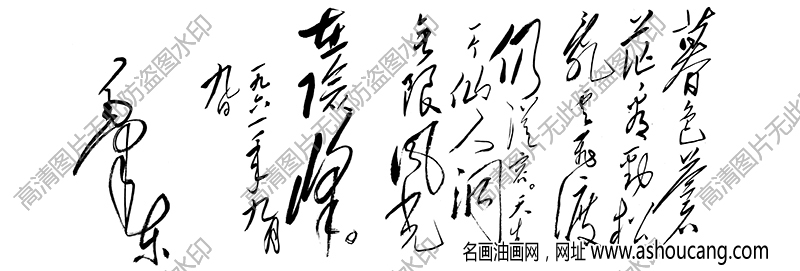 暮色蒼
茫看劲松
乱云飞渡
仍從容。天生
一个仙人洞
无限风光
在险峰。
一九六一年九月
九日
毛泽东
高清图片无此防盗图水印
高清图片无此防盗图水印
高清图片无此防盗图水印
名画油画网，网址 www.ashoucang.com